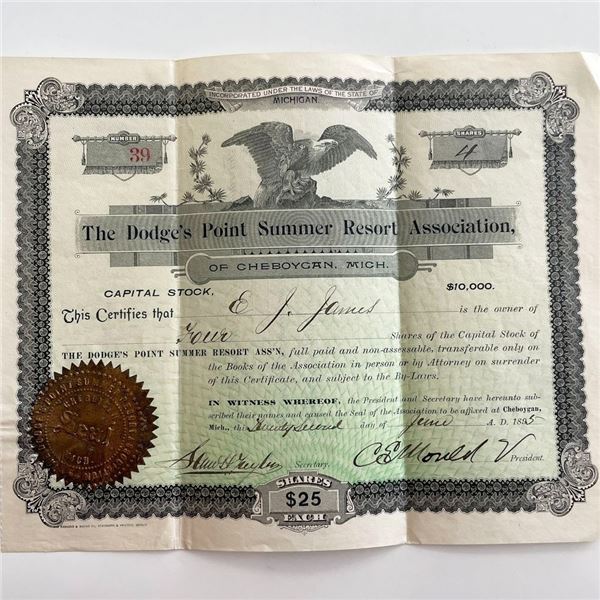 INCORPORATED UNDER THE LAWS OF THE STATE OF
MICHIGAN.
NUMBER
39
SHARES
4
The Dodge's Point Summer Resort Association,
OF CHEBOYGAN, MICH.
CAPITAL STOCK,
$10,000.
This Certifies that E J. James is the owner of
Four Shares of the Capital Stock of
THE DODGE'S POINT SUMMER RESORT ASS'N, full paid and non-assessable, transferable only on
the Books of the Association in person or by Attorney on surrender
of this Certificate, and subject to the By-Laws.
IN WITNESS WHEREOF, the President and Secretary have hereunto sub-
scribed their names and caused the Seal of the Association to be affixed at Cheboygan,
Mich., the day of June A. D. 1895
Secretary.
President.
SHARES
$25
EACH